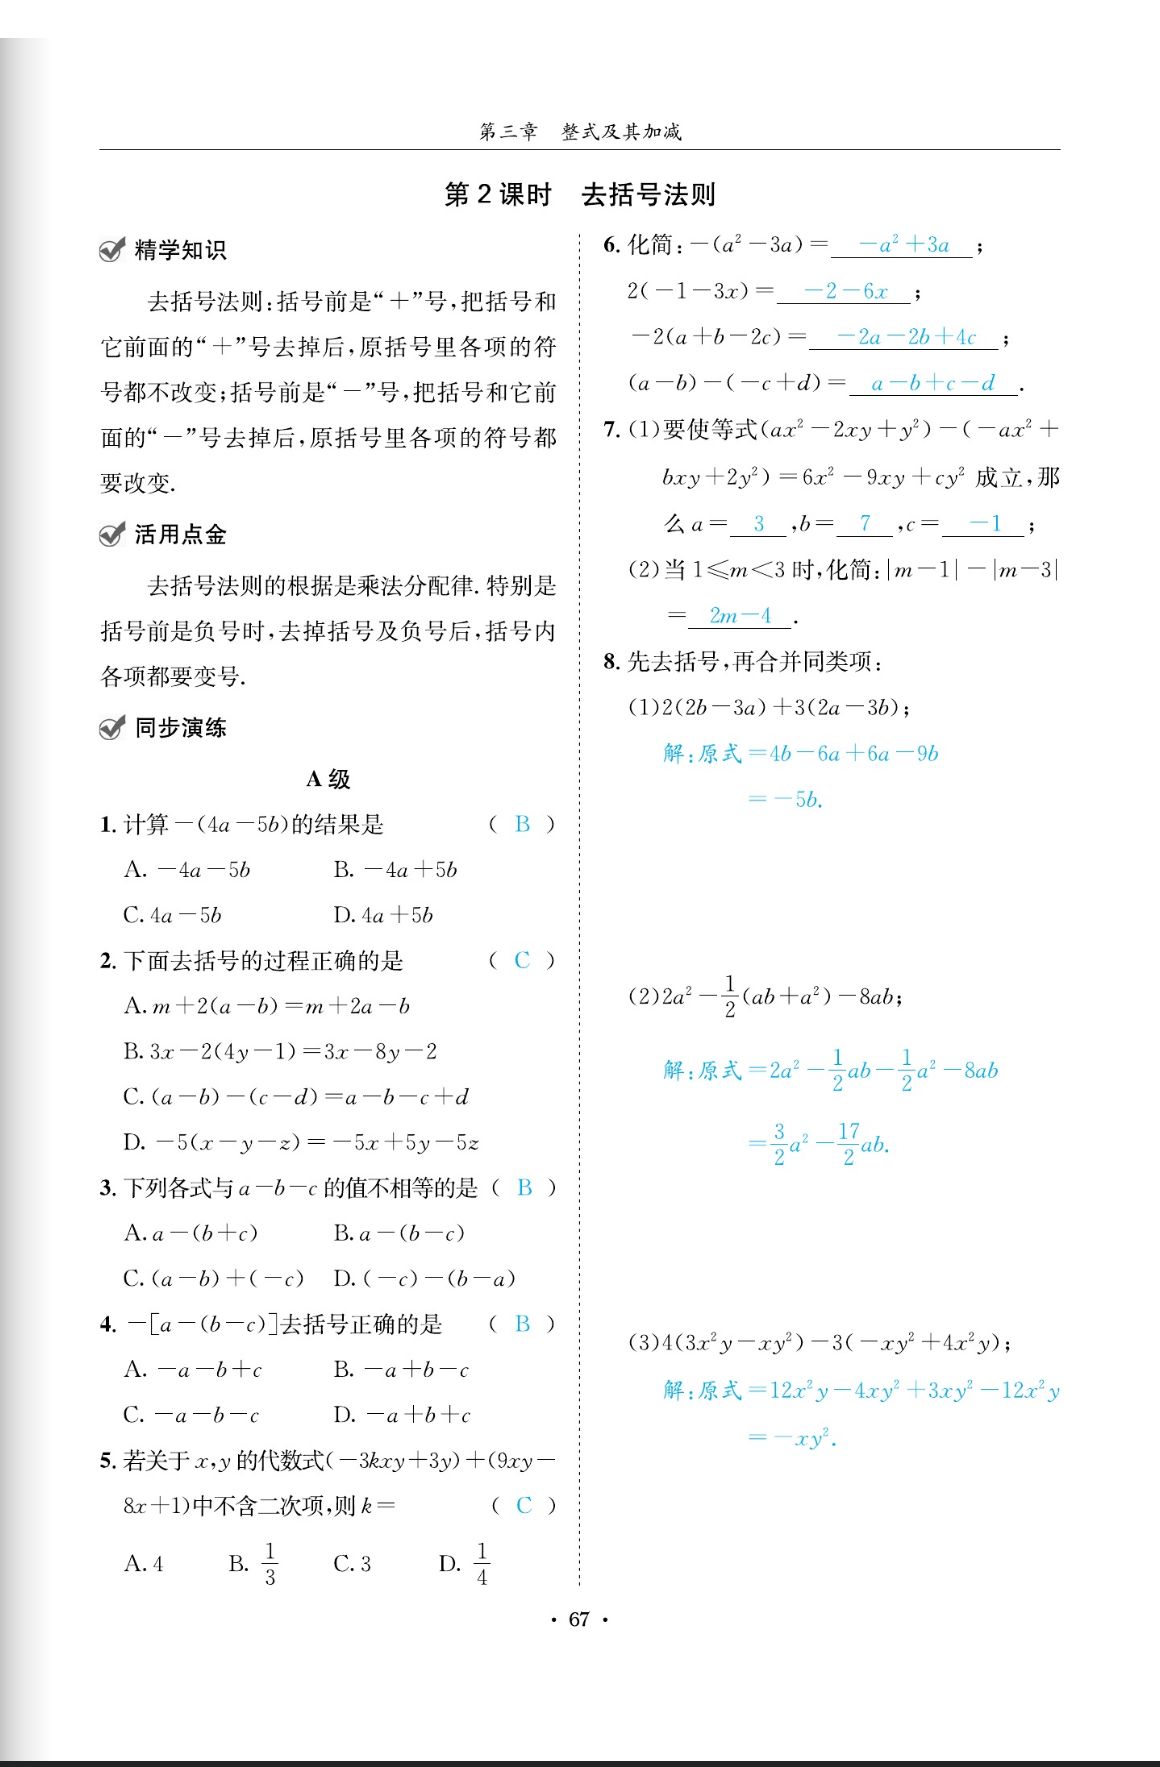 第三章　整式及其加减
第2课时　去括号法则
精学知识
去括号法则:括号前是“＋”号,把括号和
它前面的“＋”号去掉后,原括号里各项的符
号都不改变;括号前是“－”号,把括号和它前
面的“－”号去掉后,原括号里各项的符号都
要改变.
活用点金
去括号法则的根据是乘法分配律.特别是
括号前是负号时,去掉括号及负号后,括号内
各项都要变号.
同步演练
A级
1. 计算－(4a－5b)的结果是 ( B )
A. －4a－5b B. －4a＋5b
C. 4a－5b D. 4a＋5b
2. 下面去括号的过程正确的是 ( C )
A. m＋2(a－b)＝m＋2a－b
B. 3x－2(4y－1)＝3x－8y－2
C. (a－b)－(c－d)＝a－b－c＋d
D. －5(x－y－z)＝－5x＋5y－5z
3. 下列各式与a－b－c的值不相等的是 ( B )
A. a－(b＋c) B. a－(b－c)
C. (a－b)＋(－c) D. (－c)－(b－a)
4. －[a－(b－c)]去括号正确的是 ( B )
A. －a－b＋c B. －a＋b－c
C. －a－b－c D. －a＋b＋c
5. 若关于x,y的代数式(－3kxy＋3y)＋(9xy－
8x＋1)中不含二次项,则k＝ ( C )
A. 4 B. 1/3 C. 3 D. 1/4
6. 化简:－(a²－3a)＝ －a²＋3a ;
2(－1－3x)＝ －2－6x ;
－2(a＋b－2c)＝ －2a－2b＋4c ;
(a－b)－(－c＋d)＝ a－b＋c－d .
7. (1)要使等式(ax²－2xy＋y²)－(－ax²＋
bxy＋2y²)＝6x²－9xy＋cy² 成立,那
么a＝ 3 ,b＝ 7 ,c＝ －1 ;
(2)当1≤m＜3时,化简:|m－1|－|m－3|
＝ 2m－4 .
8. 先去括号,再合并同类项:
(1)2(2b－3a)＋3(2a－3b);
解:原式＝4b－6a＋6a－9b
＝－5b.
(2)2a²－1/2(ab＋a²)－8ab;
解:原式＝2a²－1/2ab－1/2a²－8ab
＝3/2a²－17/2ab.
(3)4(3x²y－xy²)－3(－xy²＋4x²y);
解:原式＝12x²y－4xy²＋3xy²－12x²y
＝－xy².
· 67 ·